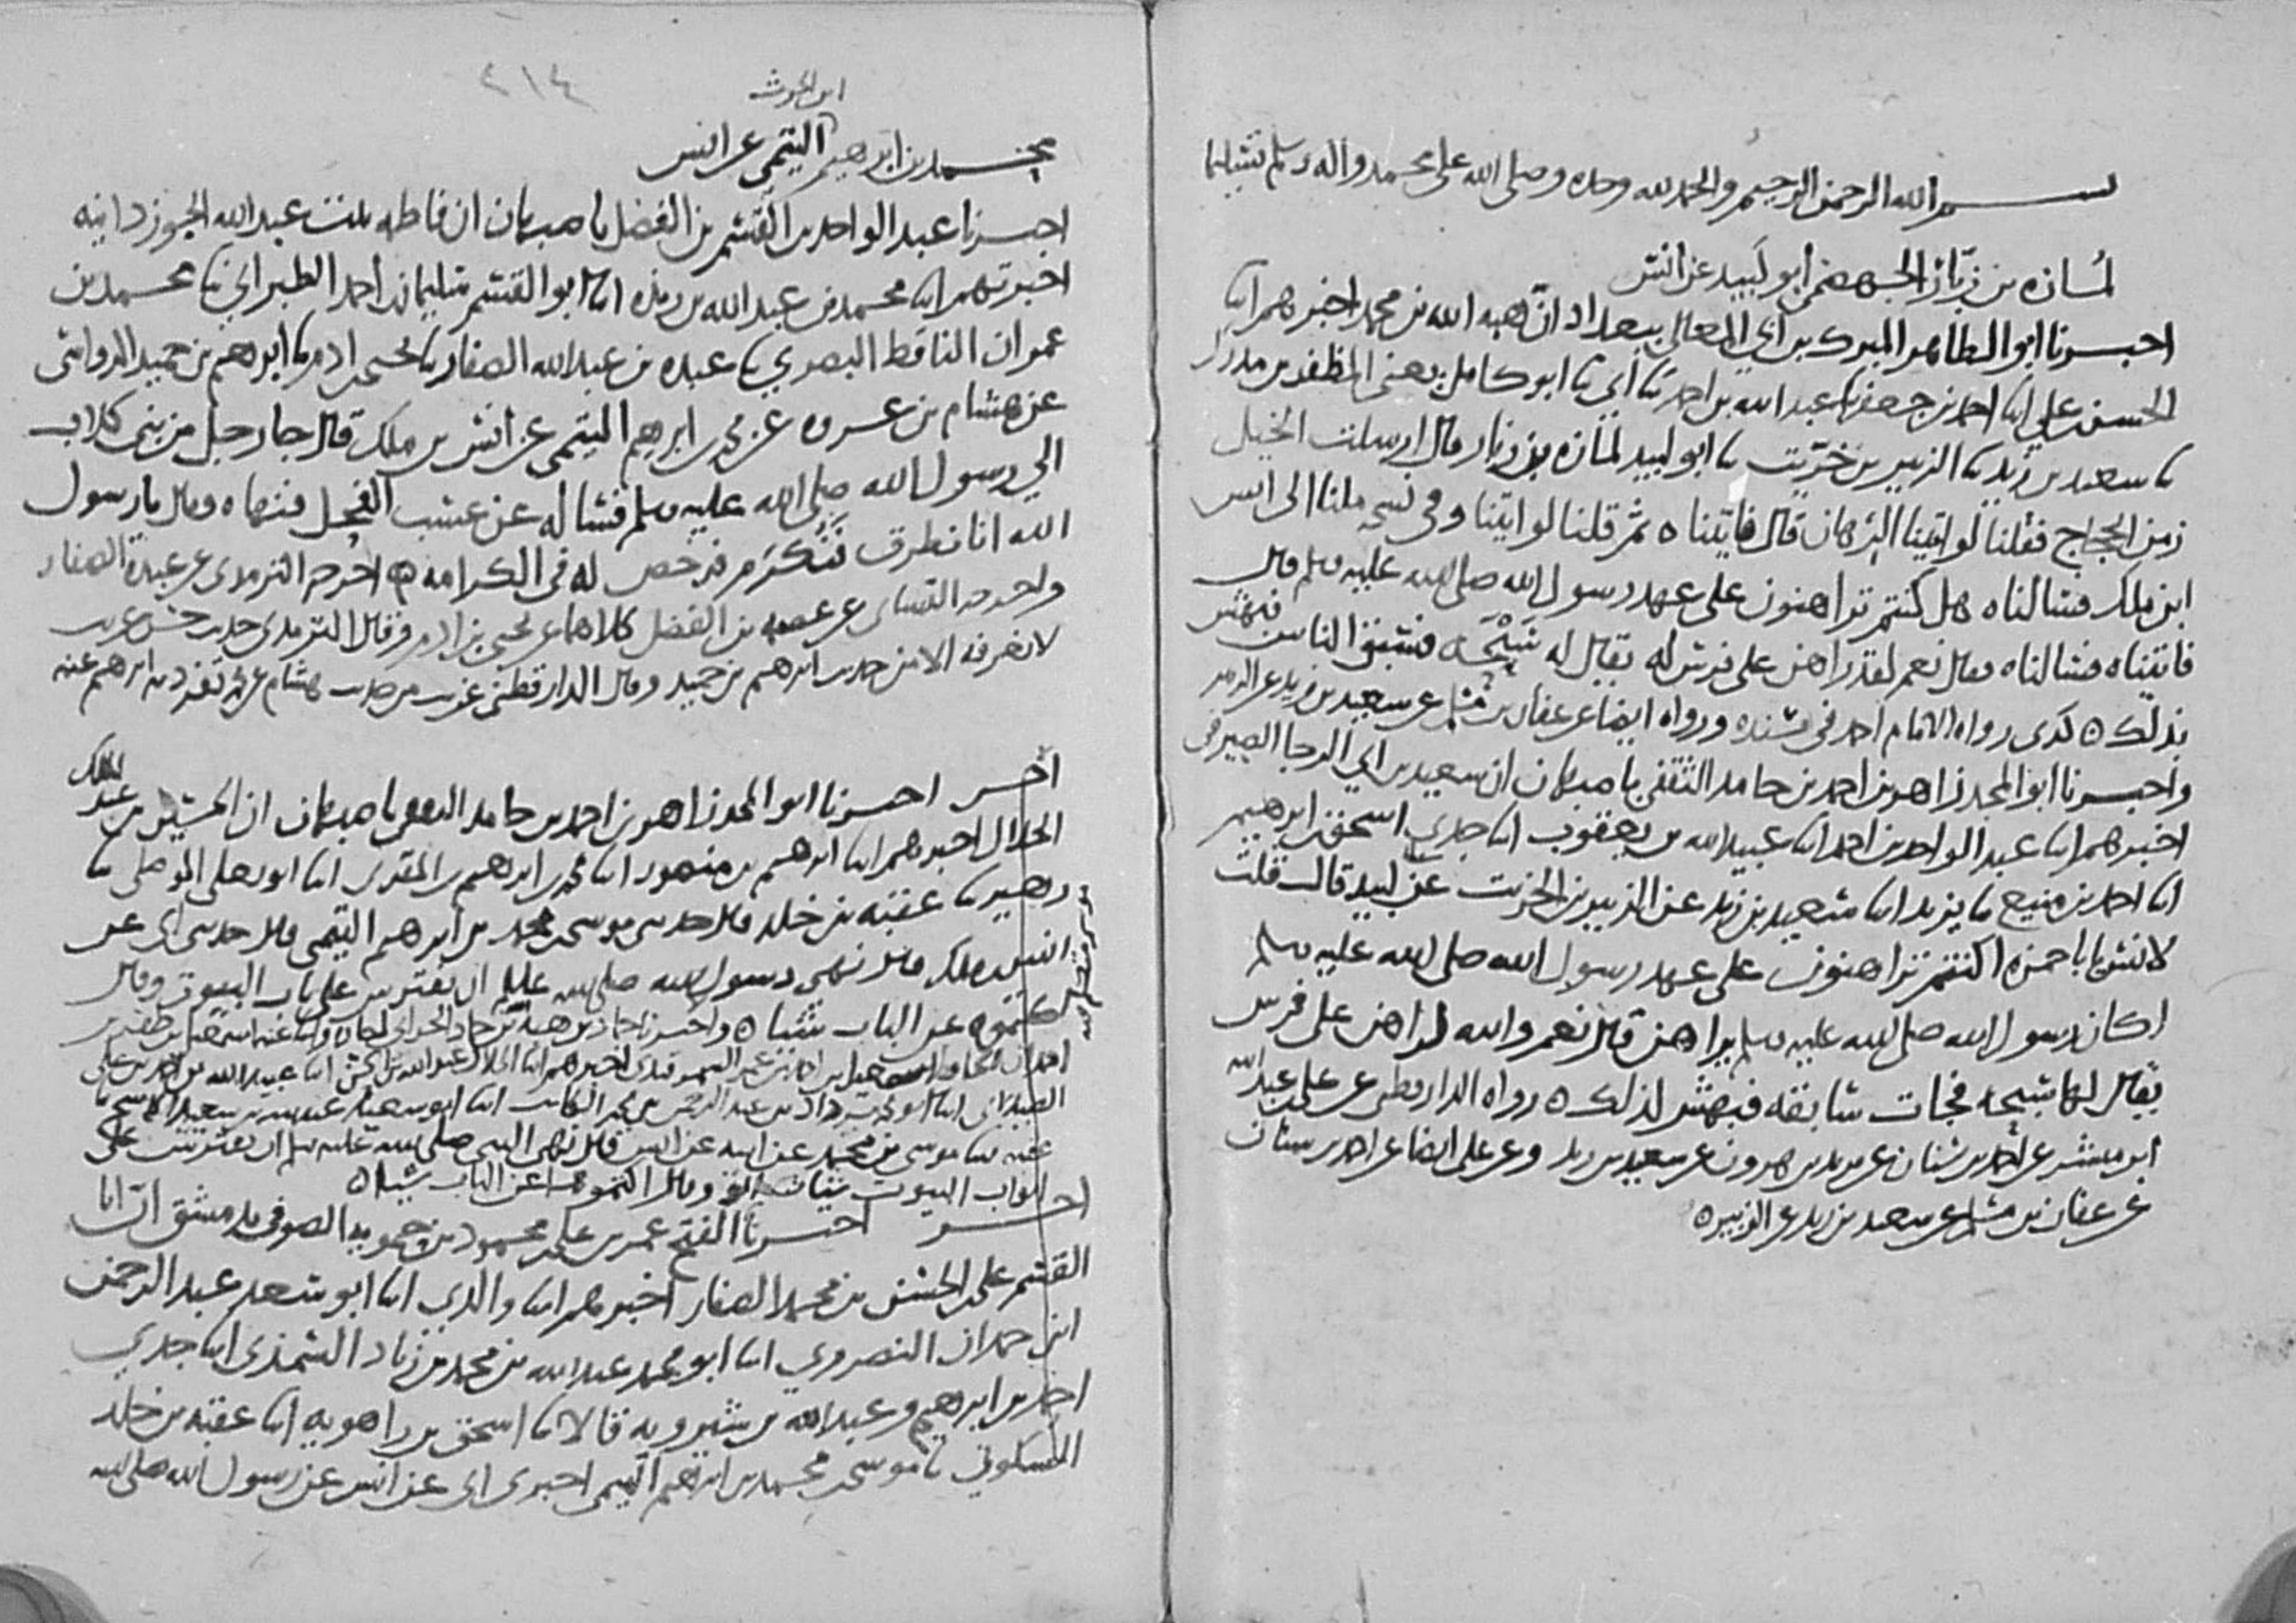 بسم الله الرحمن الرحيم والحمد لله وحده وصلى الله على محمد واله وسلم تسليما
لمازه بن زبار الجهضمي ابو لبيد عن انس
اخبرنا ابو الطاهر المبرك بن ابي المعالي ببغداد ان هبه الله بن محمد اخبرهم ابنا
الحسن بن علي ابنا احمد بن جعفر ثنا عبد الله بن احمد ثنا ابي ثنا ابو كامل يعني المظفر بن مدرك
ثنا سعيد بن زيد ثنا الزبير بن خريت ثنا ابو لبيد لمازه بن زبار قال ارسلت الخيل
زمن الحجاج فقلنا لو اتينا الرهان قال فاتيناه ثم قلنا لو اتينا وفي نسخه ملنا الى انس
ابن ملك فسالناه هل كنتم تراهنون على عهد رسول الله صلى الله عليه وسلم قال
فاتيناه فسالناه فقال نعم لقد راهن على فرس له يقال له سبحه فسبق الناس فبهش
لذلك ٥ كذى رواه الامام احمد في مسنده ورواه ايضا عن عفان بن مسلم عن سعيد بن زيد عن الزبير
واخبرنا ابو المجد زاهر بن احمد بن حامد الثقفي باصبهان ان سعيد بن ابي الرجا الصيرفي
اخبرهم ابنا عبد الواحد بن احمد ابنا عبيد الله بن يعقوب ابنا جدي اسحق بن ابرهيم
ابنا احمد بن منيع ثنا يزيد ابنا سعيد بن زيد عن الزبير بن الخريت عن لبيد قال قلت
لانس يابا حمزه اكنتم تراهنون على عهد رسول الله صلى الله عليه وسلم
اكان رسول الله صلى الله عليه وسلم يراهن قال نعم والله لراهن على فرس
يقال لها سبحه فجات سابقه فبهش لذلك ٥ رواه الدارقطني عن علي بن عبد الله
ابن مبشر عن احمد بن سنان عن يزيد بن هرون عن سعيد بن زيد وعن علي ايضا عن احمد بن سنان
عن عفان بن مسلم عن سعيد بن زيد عن الزبير ٥
٢١٤
ابن الحرث
محمد بن ابرهيم التيمي عن انس
اخبرنا عبد الواحد بن القسم بن الفضل باصبهان ان فاطمه بنت عبد الله الجوزدانيه
اخبرتهم ابنا محمد بن عبد الله بن ريذه ابنا ابو القسم سليمان بن احمد الطبراني ثنا محمد بن
عمران الناقط البصري ثنا عبده بن عبد الله الصفار ثنا يحيى بن ادم ثنا ابرهيم بن حميد الرواسي
عن هشام بن عروه عن محمد بن ابرهيم التيمي عن انس بن ملك قال جا رجل من بني كلاب
الى رسول الله صلى الله عليه وسلم فساله عن عسب الفحل فنهاه وقال يا رسول
الله انا نطرق فنكرم فرخص له في الكرامه اخرجه الترمذي عن عبدة الصفار
واخرجه النسائي عن عصمه بن الفضل كلاهما عن يحيى بن ادم وقال الترمذي حديث حسن غريب
لا نعرفه الا من حديث ابرهيم بن حميد وقال الدارقطني غريب من حديث هشام عن محمد تفرد به ابرهيم عنه
اخر اخبرنا ابو المجد زاهر بن احمد بن حامد الثقفي باصبهان ان الحسين بن عبد الملك
الخلال اخبرهم ابنا ابرهيم بن منصور ابنا محمد بن ابرهيم بن المقرئ ابنا ابو يعلى الموصلي ثنا
زهير ثنا عقبه بن خلد قال حدثني موسى بن محمد بن ابرهيم التيمي قال حدثني ابي عن
انس بن ملك قال نهى رسول الله صلى الله عليه وسلم ان يفترش على باب البيوت وقال
نكبوه عن الباب شيا ٥ واخبرنا حماد بن هبة الله بن حماد الحراني
احمد بن عمر السمرقندي اخبرهم ابنا عبيد الله بن احمد بن علي
الصيدلاني ابنا يزداد بن عبد الرحمن بن محمد الكاتب ابنا ابو سعيد عبد الله بن سعيد الاشج ثنا
عقبه ثنا موسى بن محمد عن ابيه عن انس قال نهى النبي صلى الله عليه وسلم ان يفترش على
ابواب البيوت وقال نكبوها عن الباب شيا ٥
اخر اخبرنا ابو الفتح عمر بن علي بن محمد بن حمويه الصوفي بدمشق ان ابا
القسم علي بن الحسن بن محمد الصفار اخبرهم ابنا والدي ابنا ابو سعد عبد الرحمن
ابن حمدان النصروي ابنا ابو محمد عبد الله بن محمد بن زياد السمذي ابنا جدي
احمد بن ابرهيم وعبد الله بن شيرويه قالا ثنا اسحق بن راهويه ابنا عقبه بن خلد
السكوني ثنا موسى بن محمد بن ابرهيم التيمي اخبرني ابي عن انس عن رسول الله صلى الله